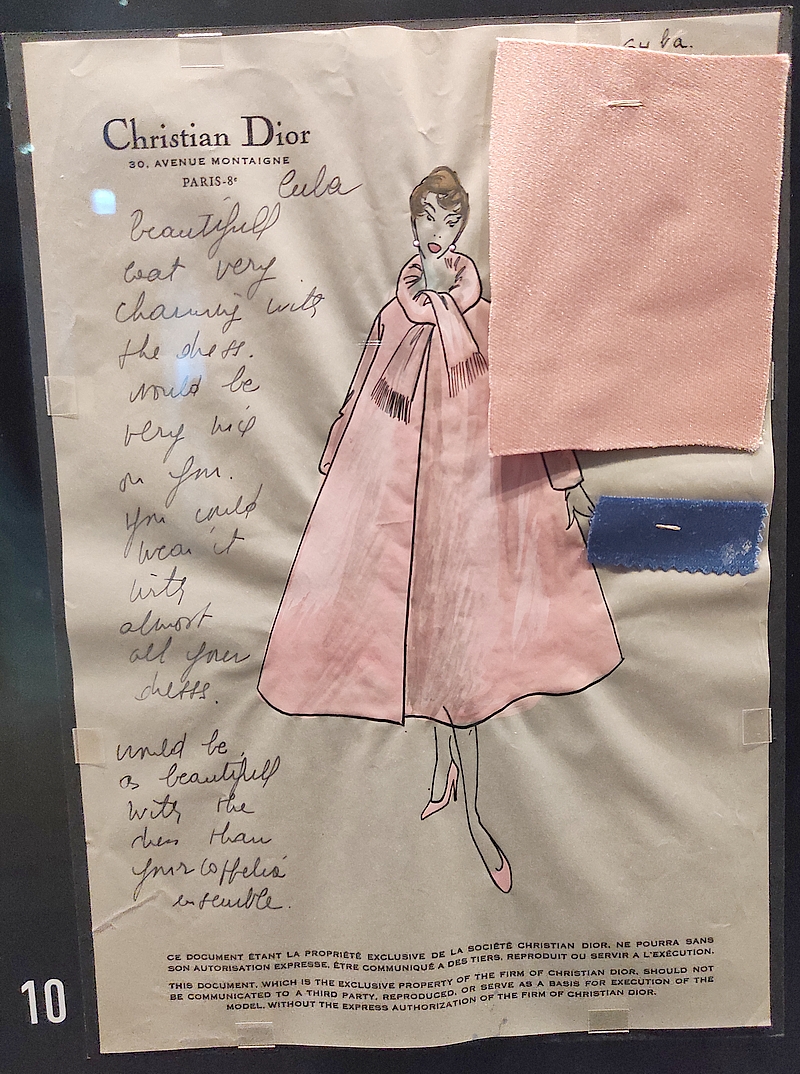 Cuba.
Christian Dior
30, AVENUE MONTAIGNE
PARIS-8e
Cuba
beautifull
coat very
charming with
the dress.
would be
very nice
on you.
you could
wear it
with
almost
all your
dresss.
would be
as beautifull
with the
dress than
your Coppelia
ensemble.
CE DOCUMENT ÉTANT LA PROPRIÉTÉ EXCLUSIVE DE LA SOCIÉTÉ CHRISTIAN DIOR, NE POURRA SANS
SON AUTORISATION EXPRESSE, ÊTRE COMMUNIQUÉ A DES TIERS, REPRODUIT OU SERVIR A L'EXÉCUTION.
THIS DOCUMENT, WHICH IS THE EXCLUSIVE PROPERTY OF THE FIRM OF CHRISTIAN DIOR, SHOULD NOT
BE COMMUNICATED TO A THIRD PARTY, REPRODUCED, OR SERVE AS A BASIS FOR EXECUTION OF THE
MODEL, WITHOUT THE EXPRESS AUTHORIZATION OF THE FIRM OF CHRISTIAN DIOR.
10